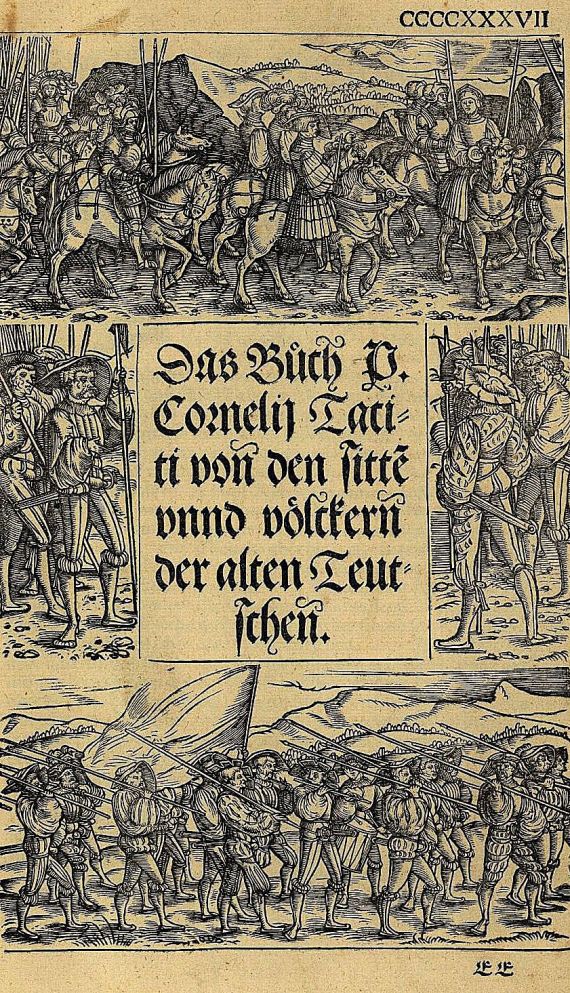 CCCCXXXVII
Das Bůch P.
Cornelij Taci⸗
ti von den sittē
vnnd völckern
der alten Teut⸗
schen.
EE